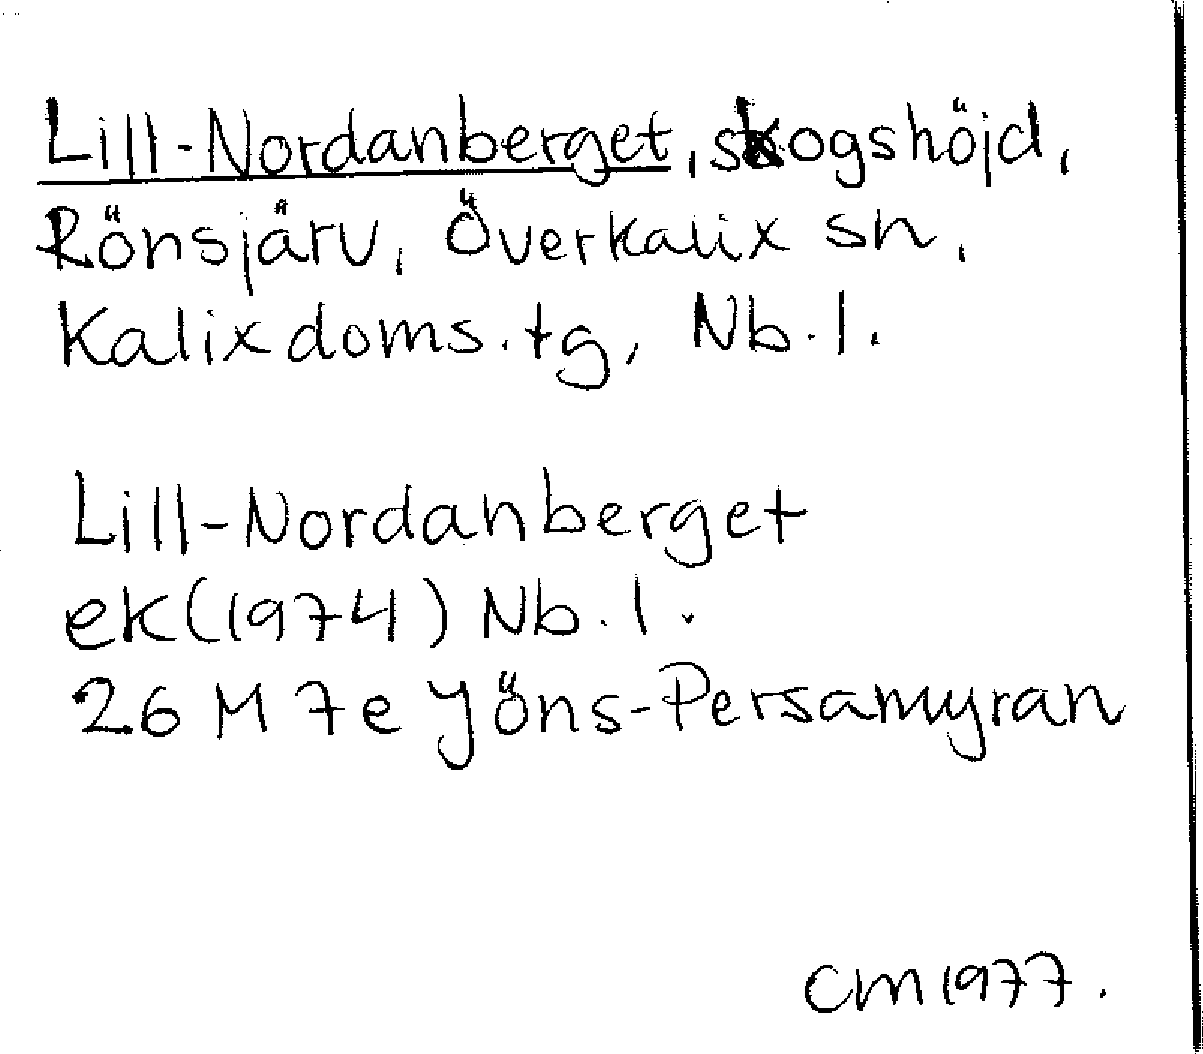 Lill-Nordanberget, skogshöjd,
Rönsjärv, Överkalix sn,
Kalix doms.tg, Nb.l.
Lill-Nordanberget
ek(1974) Nb.l.
26 M 7e Jöns-Persamyran
CM 1977.